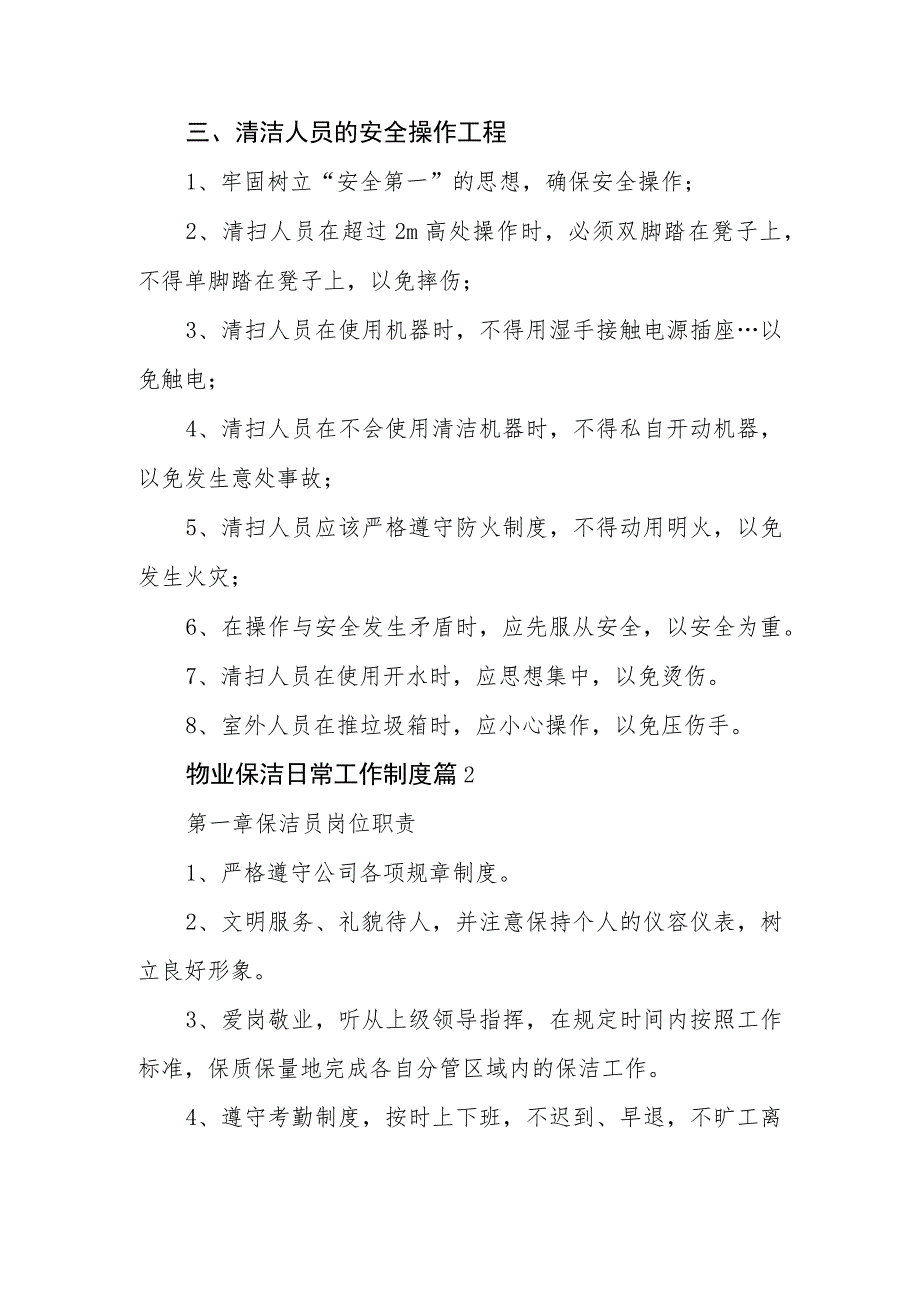 三、清洁人员的安全操作工程
1、牢固树立“安全第一”的思想，确保安全操作；
2、清扫人员在超过2m高处操作时，必须双脚踏在凳子上，
不得单脚踏在凳子上，以免摔伤；
3、清扫人员在使用机器时，不得用湿手接触电源插座…以
免触电；
4、清扫人员在不会使用清洁机器时，不得私自开动机器，
以免发生意处事故；
5、清扫人员应该严格遵守防火制度，不得动用明火，以免
发生火灾；
6、在操作与安全发生矛盾时，应先服从安全，以安全为重。
7、清扫人员在使用开水时，应思想集中，以免烫伤。
8、室外人员在推垃圾箱时，应小心操作，以免压伤手。
物业保洁日常工作制度篇2
第一章保洁员岗位职责
1、严格遵守公司各项规章制度。
2、文明服务、礼貌待人，并注意保持个人的仪容仪表，树
立良好形象。
3、爱岗敬业，听从上级领导指挥，在规定时间内按照工作
标准，保质保量地完成各自分管区域内的保洁工作。
4、遵守考勤制度，按时上下班，不迟到、早退，不旷工离